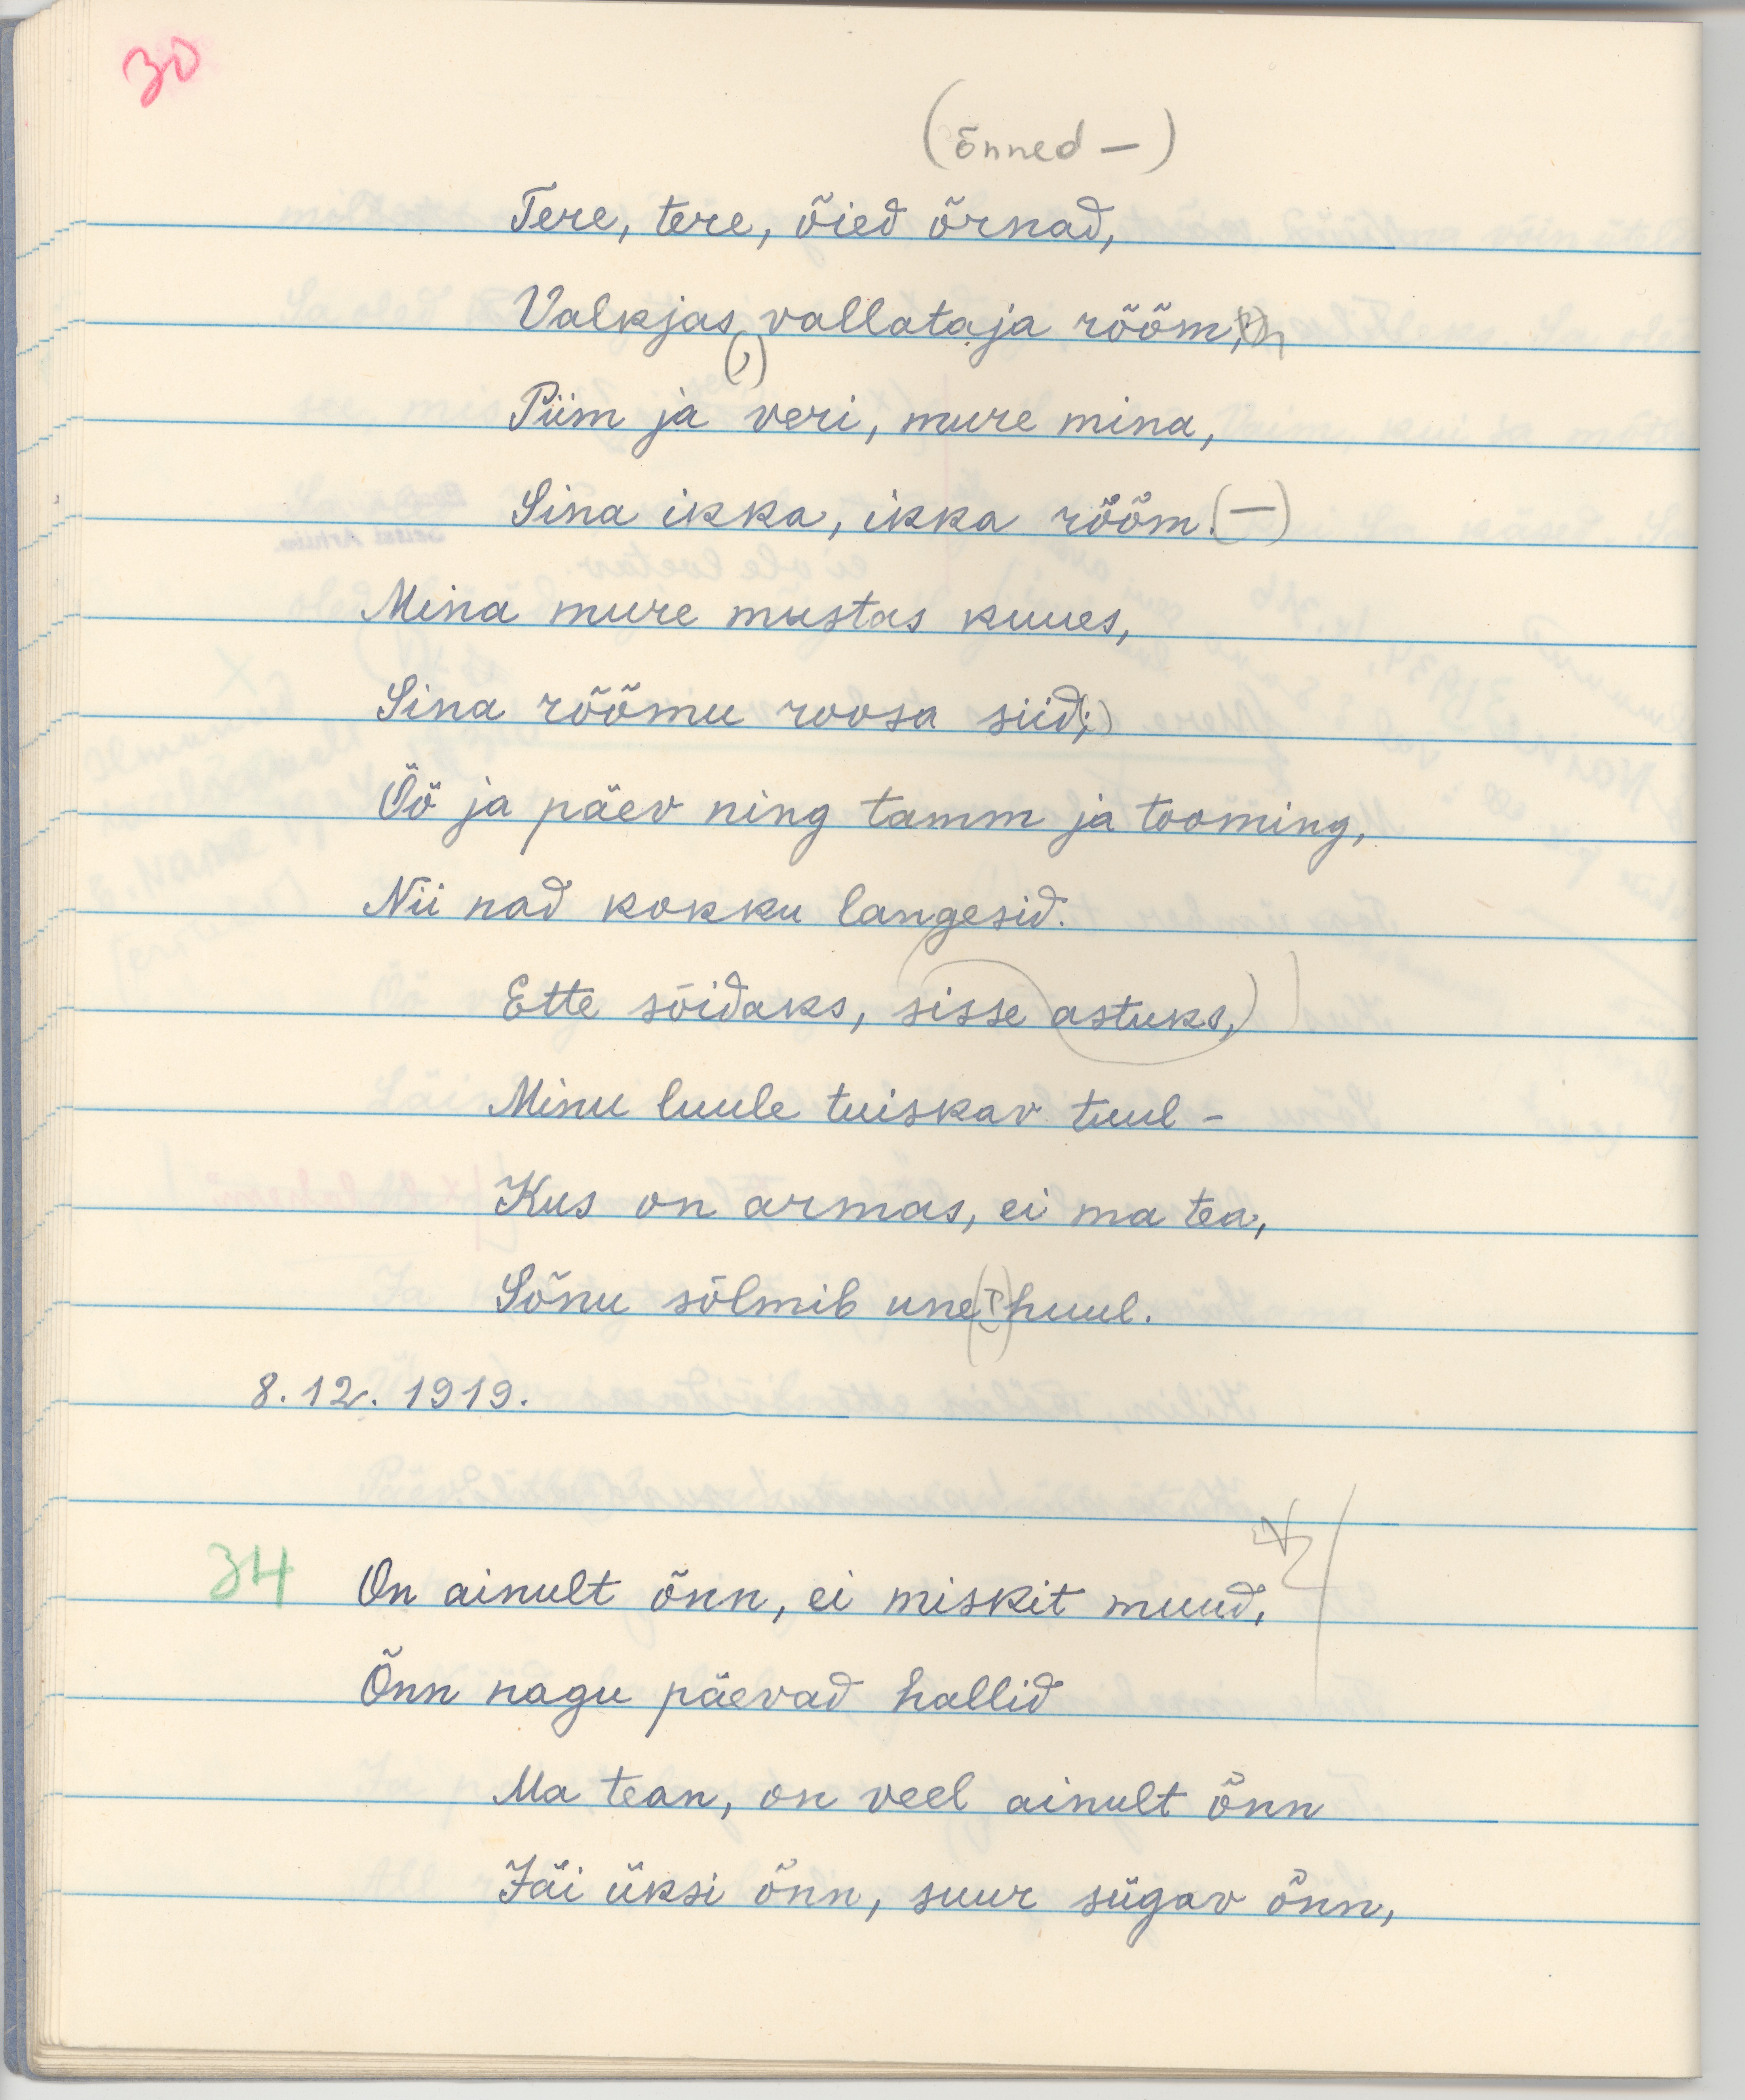 30
(õnned —)
Tere, tere, õied õrnad,
Valkjas, vallataja rõõm,
(,)
Piim ja veri, mure mina,
Sina ikka, ikka rõõm. (—)
Mina mure mustas kuues,
Sina rõõmu roosa siid;
Öö ja päev ning tamm ja tooming,
Nii nad kokku langesid.
Ette sõidaks, sisse astuks,
Minu luule tuiskav tuul –
Kus on armas, ei ma tea,
Sõnu sõlmib une huul.
8. 12. 1919.
34 On ainult õnn, ei miskit muud,
Õnn nagu päevad hallid
Ma tean, on veel ainult õnn
Jäi üksi õnn, suur sügav õnn,